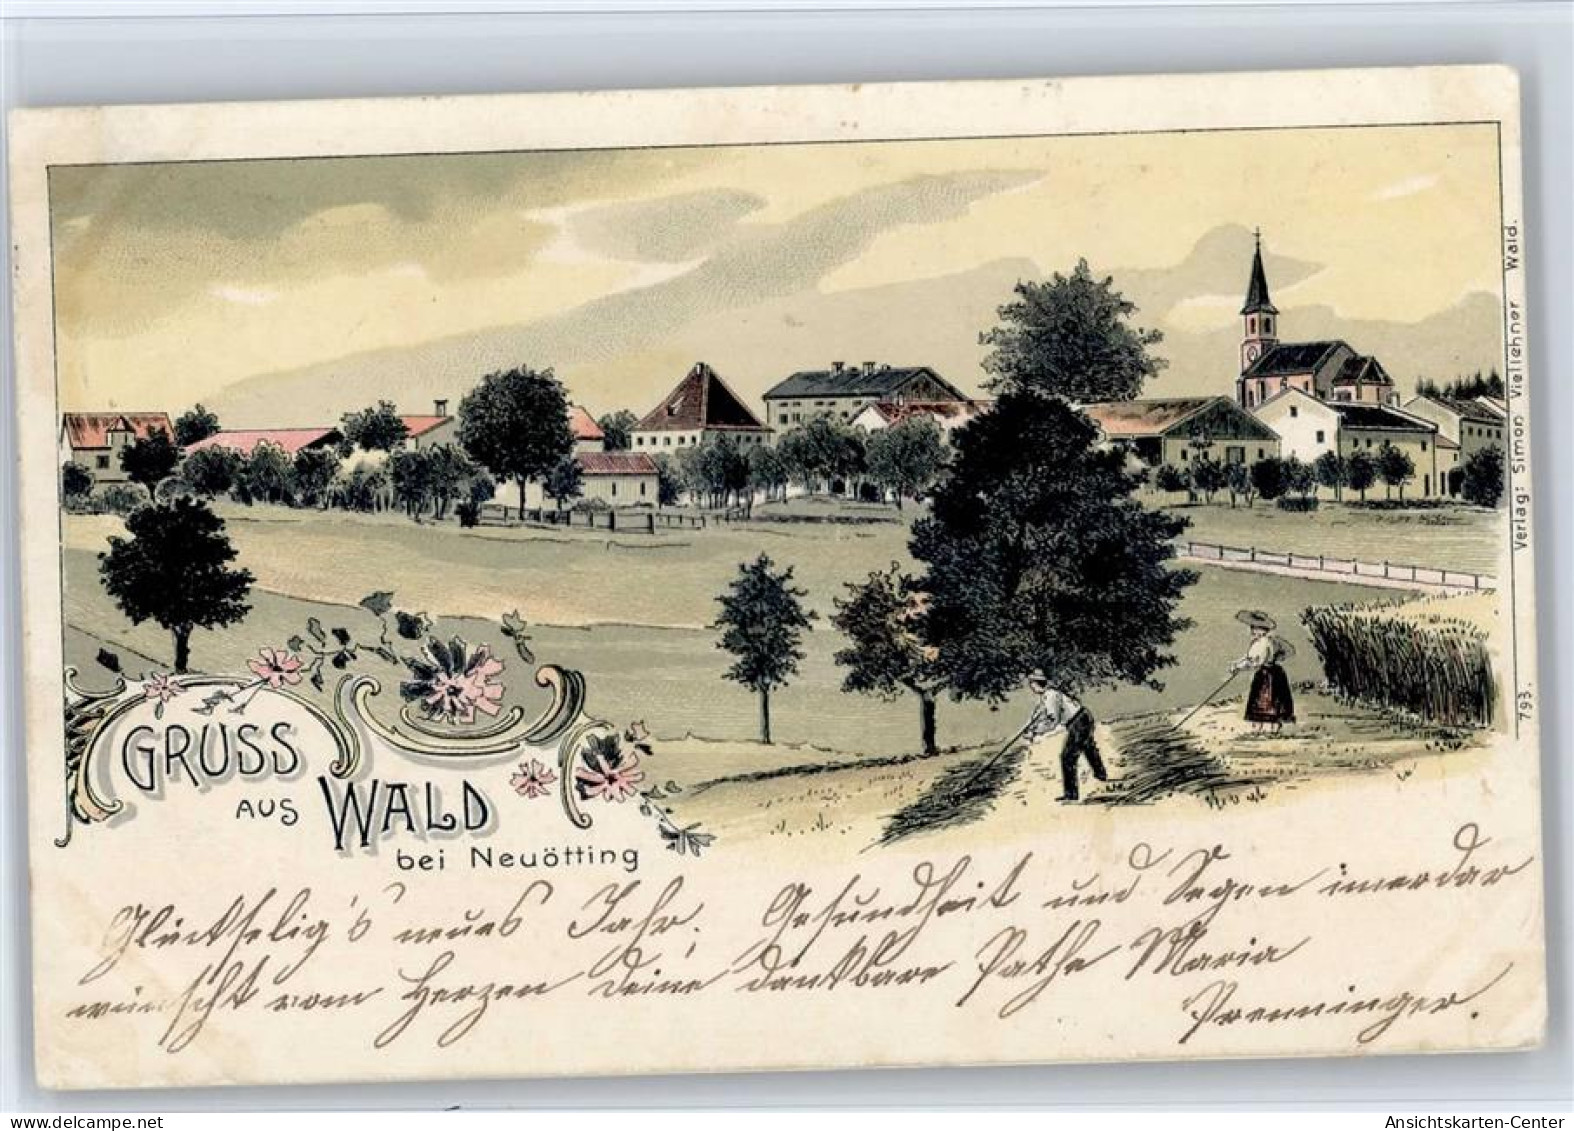 GRUSS
AUS WALD
bei Neuötting
Verlag: Simon Viellehner Wald.
793.
Glückselig's neues Jahr. Gesundheit und Segen imerdar
wünscht vom Herzen Deine dankbare Pathe Maria
Prenninger.
Ansichtskarten-Center